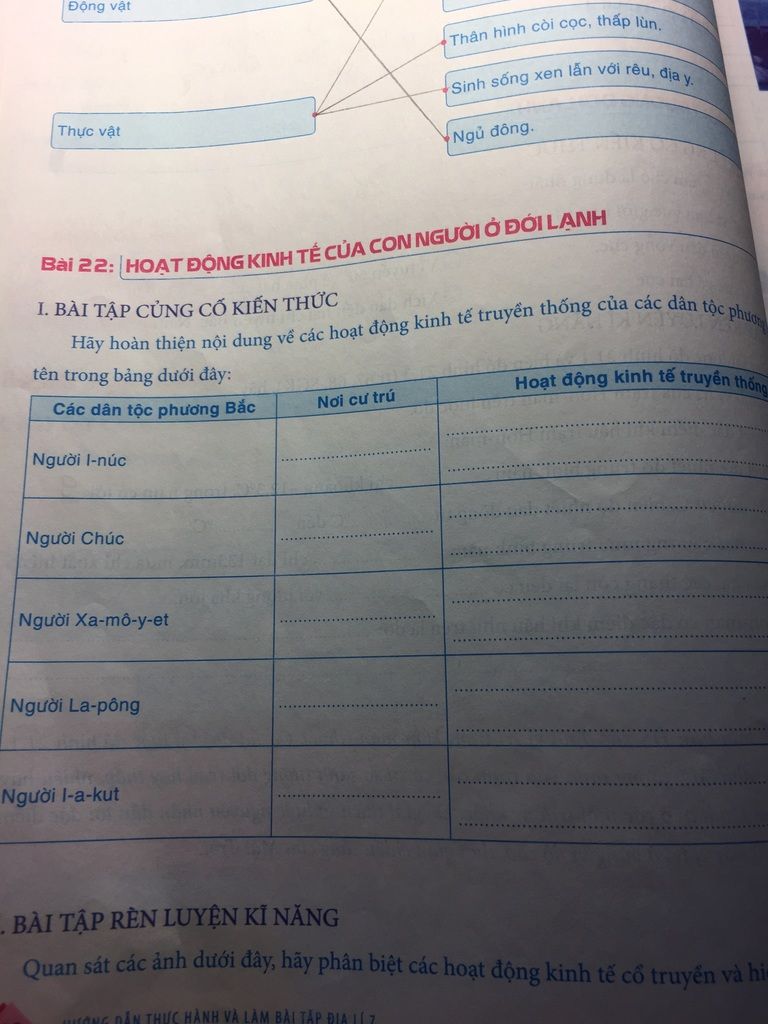 Động vật
Thân hình còi cọc, thấp lùn.
Sinh sống xen lẫn với rêu, địa y.
Thực vật
Ngủ đông.
Bài 22: HOẠT ĐỘNG KINH TẾ CỦA CON NGƯỜI Ở ĐỚI LẠNH
I. BÀI TẬP CỦNG CỐ KIẾN THỨC
Hãy hoàn thiện nội dung về các hoạt động kinh tế truyền thống của các dân tộc phương
tên trong bảng dưới đây:
Các dân tộc phương Bắc
Nơi cư trú
Hoạt động kinh tế truyền thống
Người I-núc
Người Chúc
Người Xa-mô-y-et
Người La-pông
Người I-a-kut
. BÀI TẬP RÈN LUYỆN KĨ NĂNG
Quan sát các ảnh dưới đây, hãy phân biệt các hoạt động kinh tế cổ truyền và
HƯỚNG DẪN THỰC HÀNH VÀ LÀM BÀI TẬP ĐỊA LÍ 7